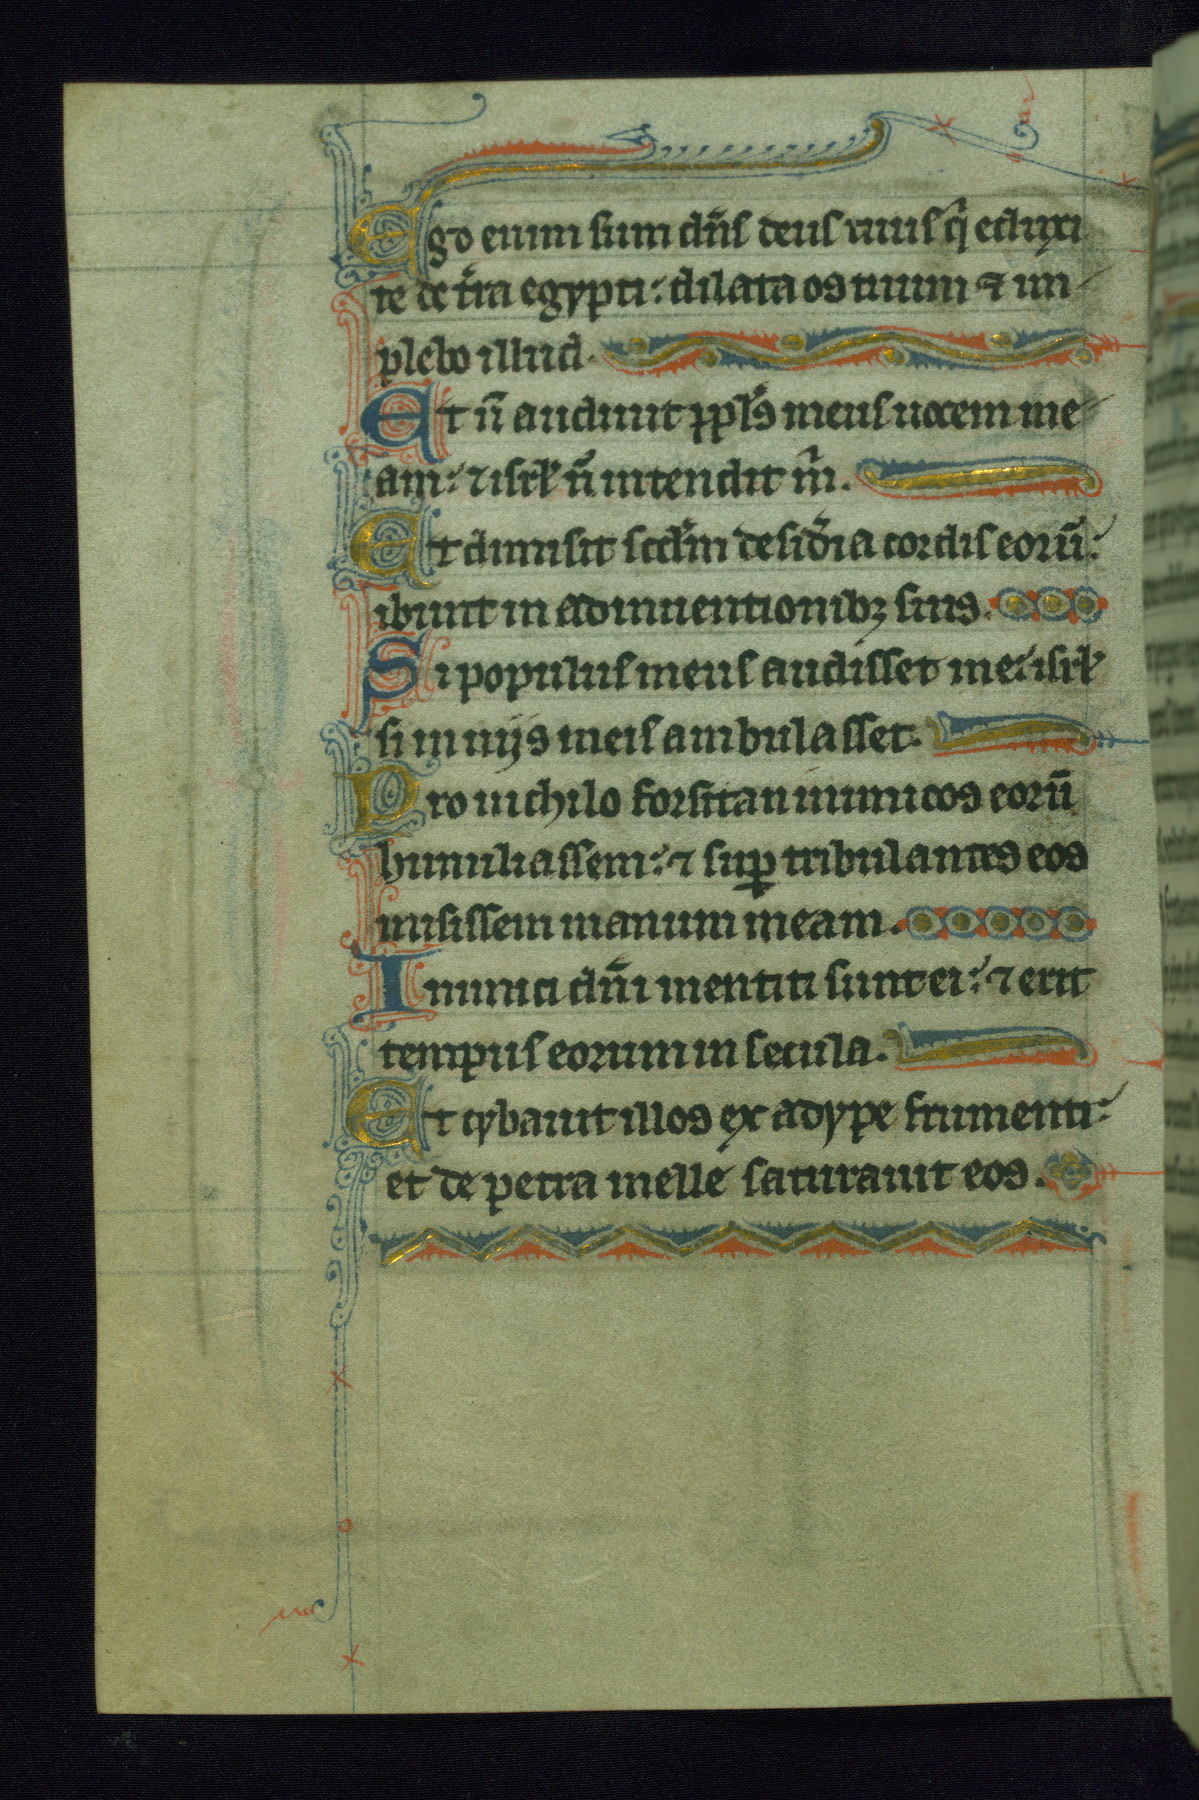 Ego enim sum dn̄s deus tuus q̇ eduxi
te de t̄ra egypti: dilata os tuum ⁊ im
plebo illud.
Et n̄ audiuit ppl̄s meus uocem me
am: ⁊ isrl̄ n̄ intendit m̄.
Et dimisit scd̄m desid̄ia cordis eorū:
ibunt in adinuentionibꝫ suis.
Si populus meus audisset me: isrl̄
si in uijs meis ambulasset.
Pro nichilo forsitan inimicos eorū
humiliassem: ⁊ suꝑ tribulantes eos
misissem manum meam.
Inimici dn̄i mentiti sunt ei: ⁊ erit
tempus eorum in secula.
Et cybauit illos ex adype frumenti:
et de petra melle saturauit eos.